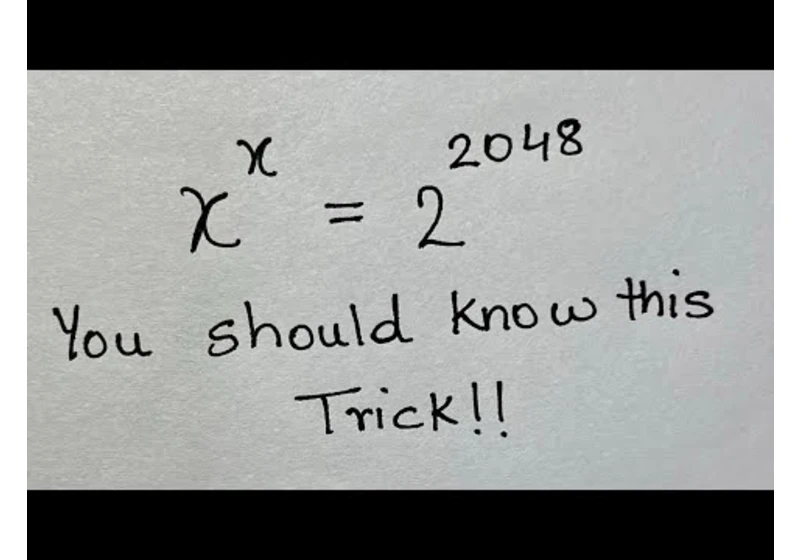 x^x = 2^2048
You should know this
Trick!!